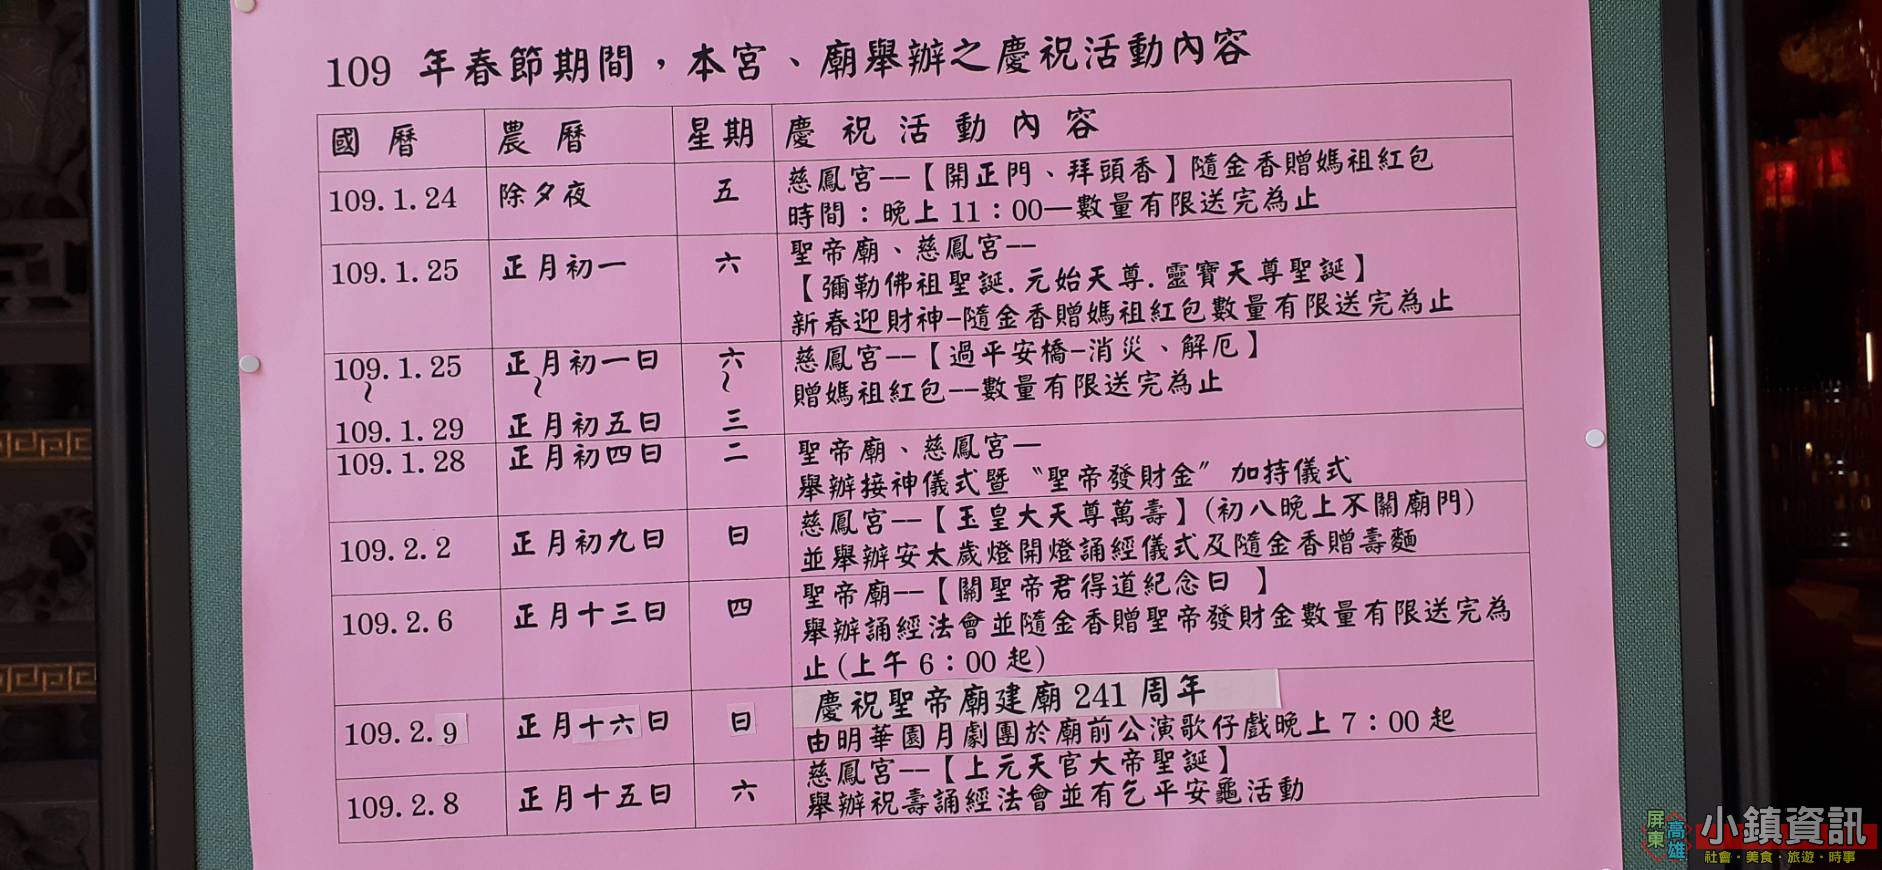 109 年春節期間，本宮、廟舉辦之慶祝活動內容
國曆 農曆 星期 慶祝活動內容
109.1.24 除夕夜 五 慈鳳宮--【開正門、拜頭香】隨金香贈媽祖紅包
時間：晚上 11：00—數量有限送完為止
109.1.25 正月初一 六 聖帝廟、慈鳳宮--
【彌勒佛祖聖誕.元始天尊.靈寶天尊聖誕】
新春迎財神-隨金香贈媽祖紅包數量有限送完為止
109.1.25 正月初一日 六 慈鳳宮--【過平安橋-消災、解厄】
~ ~ ~ 贈媽祖紅包--數量有限送完為止
109.1.29 正月初五日 三
109.1.28 正月初四日 二 聖帝廟、慈鳳宮—
舉辦接神儀式暨〝聖帝發財金〞加持儀式
109.2.2 正月初九日 日 慈鳳宮--【玉皇大天尊萬壽】(初八晚上不關廟門)
並舉辦安太歲燈開燈誦經儀式及隨金香贈壽麵
109.2.6 正月十三日 四 聖帝廟--【關聖帝君得道紀念日 】
舉辦誦經法會並隨金香贈聖帝發財金數量有限送完為
止(上午 6：00 起)
109.2.9 正月十六日 日 慶祝聖帝廟建廟 241 周年
由明華園月劇團於廟前公演歌仔戲晚上 7：00 起
109.2.8 正月十五日 六 慈鳳宮--【上元天官大帝聖誕】
舉辦祝壽誦經法會並有乞平安龜活動
屏東 高雄 小鎮資訊
社會・美食・旅遊・時事